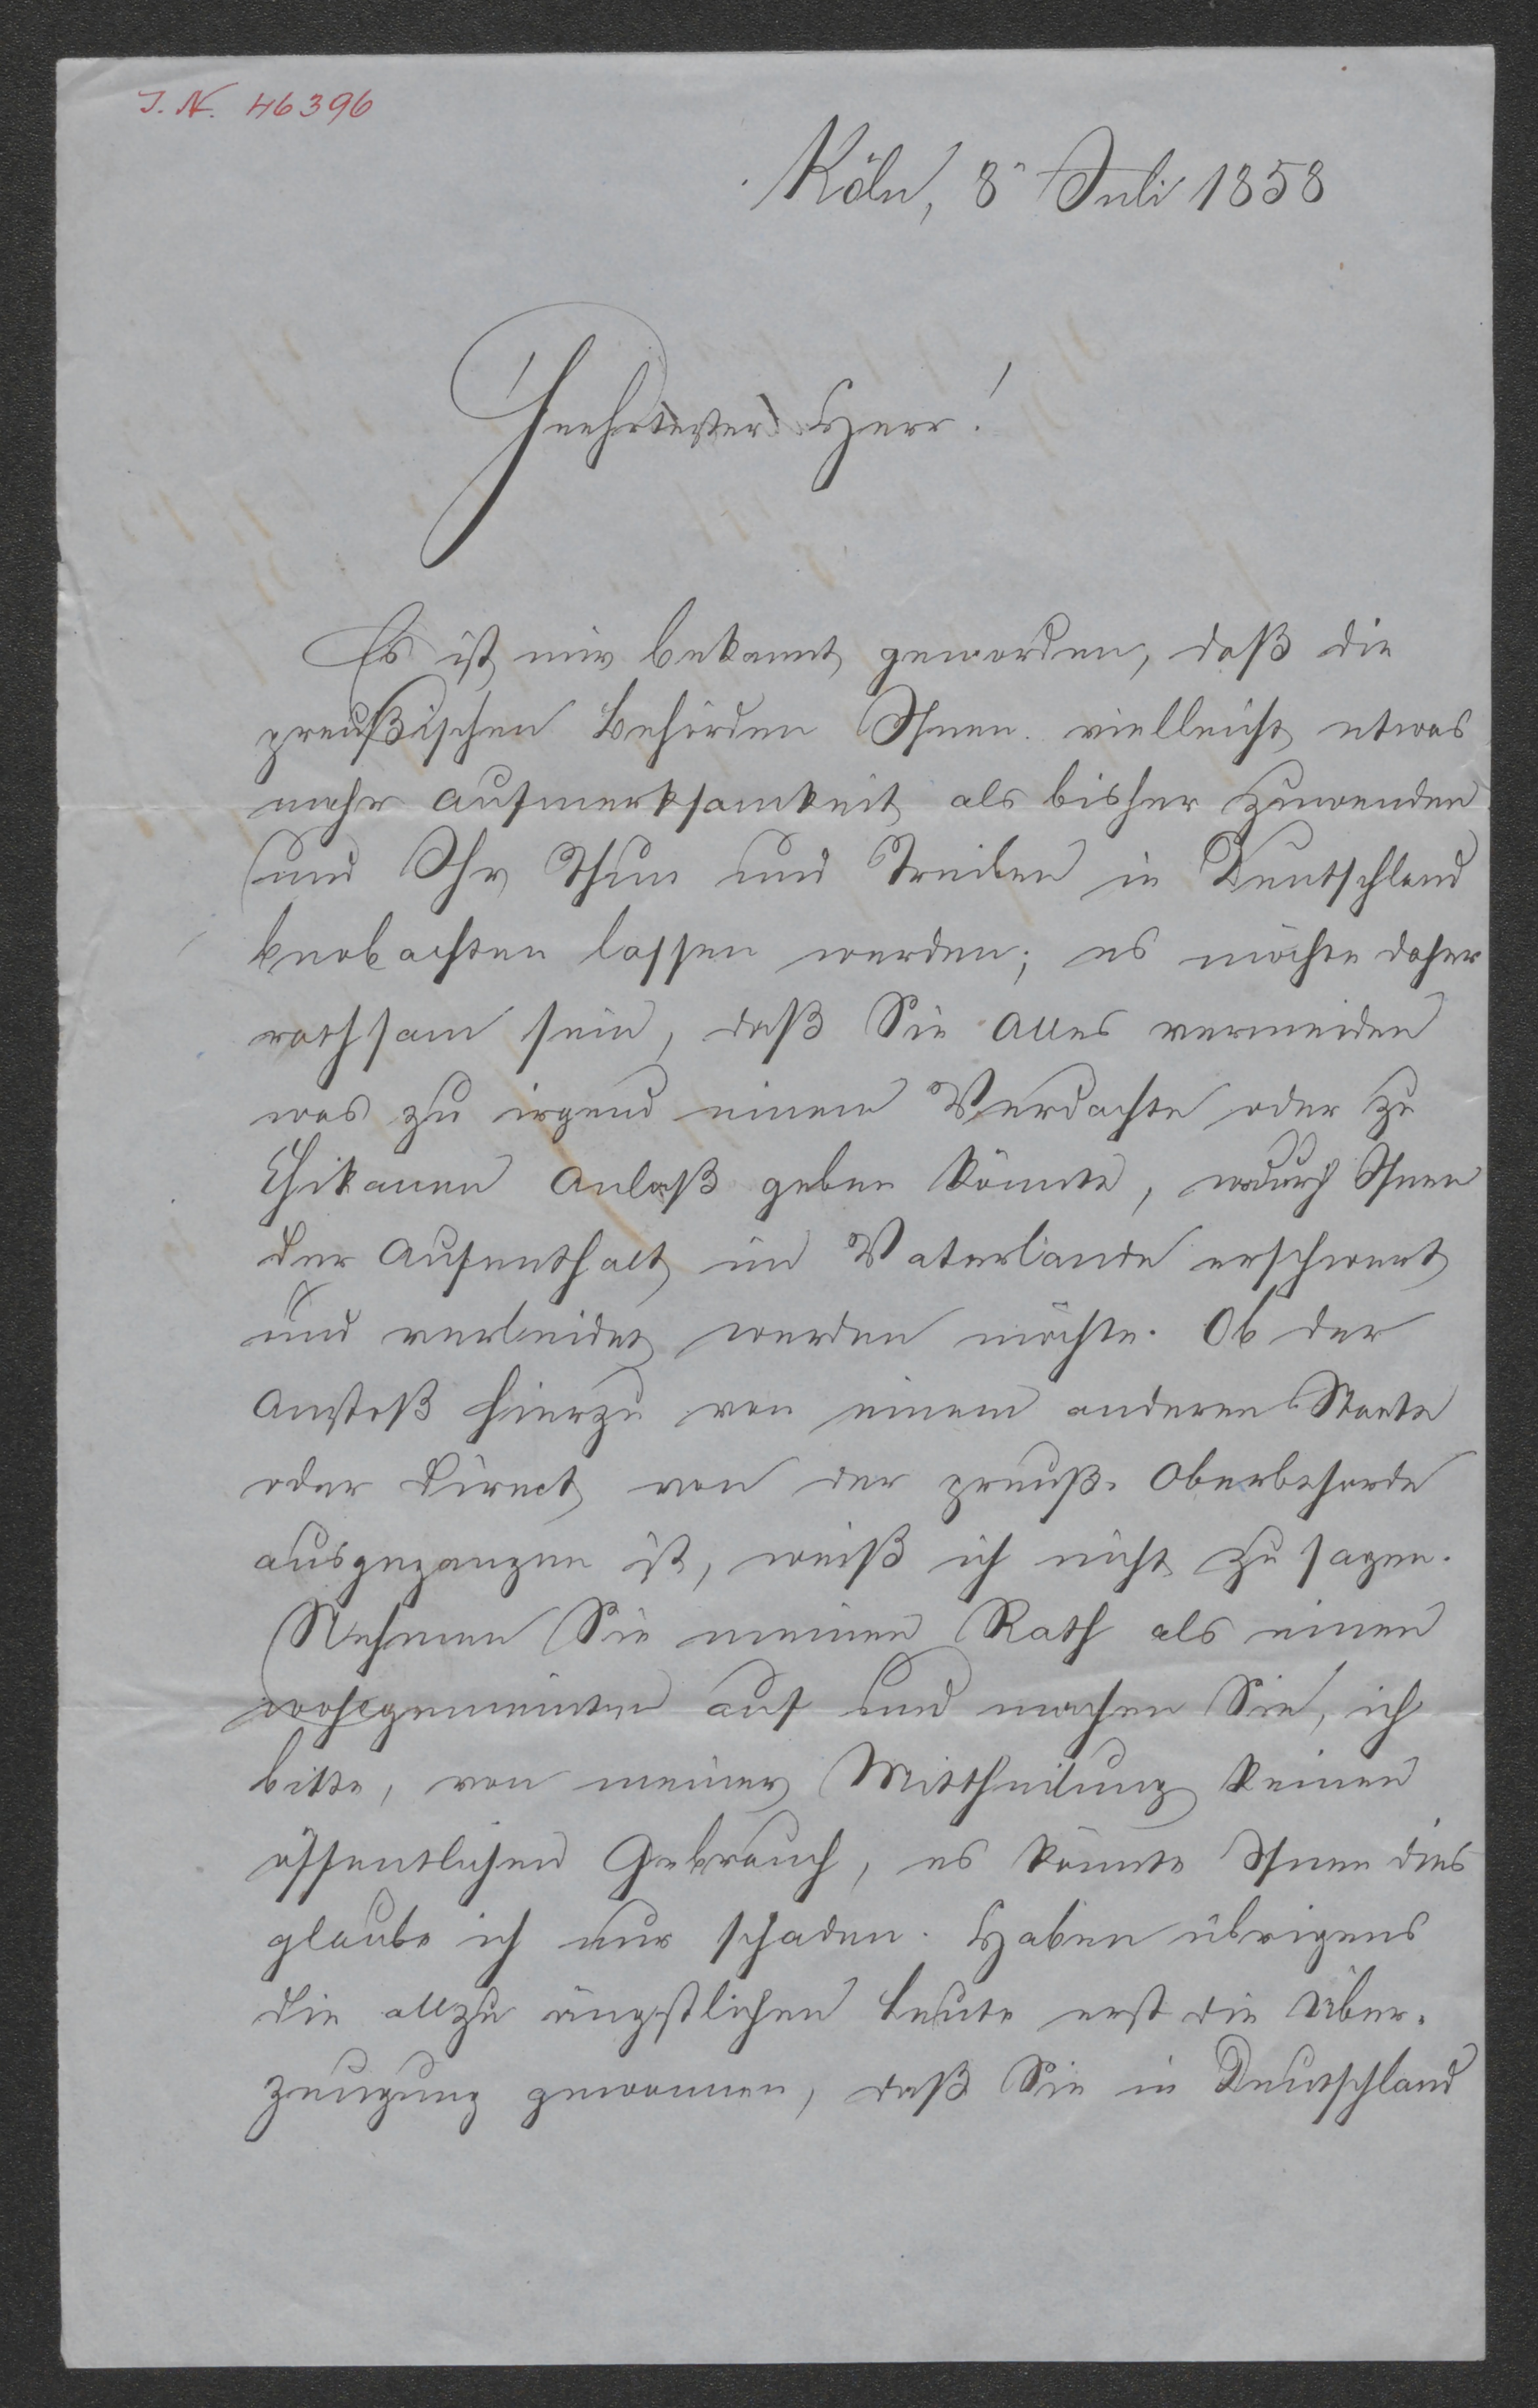 J. N. 46396
Köln, 8ⁿ Juli 1858
Geehrtester Herr!
Es ist mir bekannt geworden, daß die
preußischen Behörden Ihnen vielleicht etwas
mehr Aufmerksamkeit als bisher zuwenden
und Ihr Thun und Treiben in Deutschland
beobachten lassen werden; es möchte daher
rathsam sein, daß Sie Alles vermeiden
was zu irgend einem Verdachte oder zu
Chikanen Anlaß geben könnte, wodurch Ihnen
der Aufenthalt im Vaterlande erschwert
und verleidet werden möchte. Ob der
Anstoß hierzu von einem anderen Staate
oder direct von der preuß. Oberbehorde
ausgegangen ist, weiß ich nicht zu sagen.
Nehmen Sie meinen Rath als einen
wohlgemeinten auf und machen Sie, ich
bitte, von meiner Mittheilung keinen
öffentlichen Gebrauch, es könnte Ihnen dies
glaube ich nur schaden. Haben übrigens
die allzu ängstlichen Leute erst die Über-
zeugung gewonnen, daß Sie in Deutschland